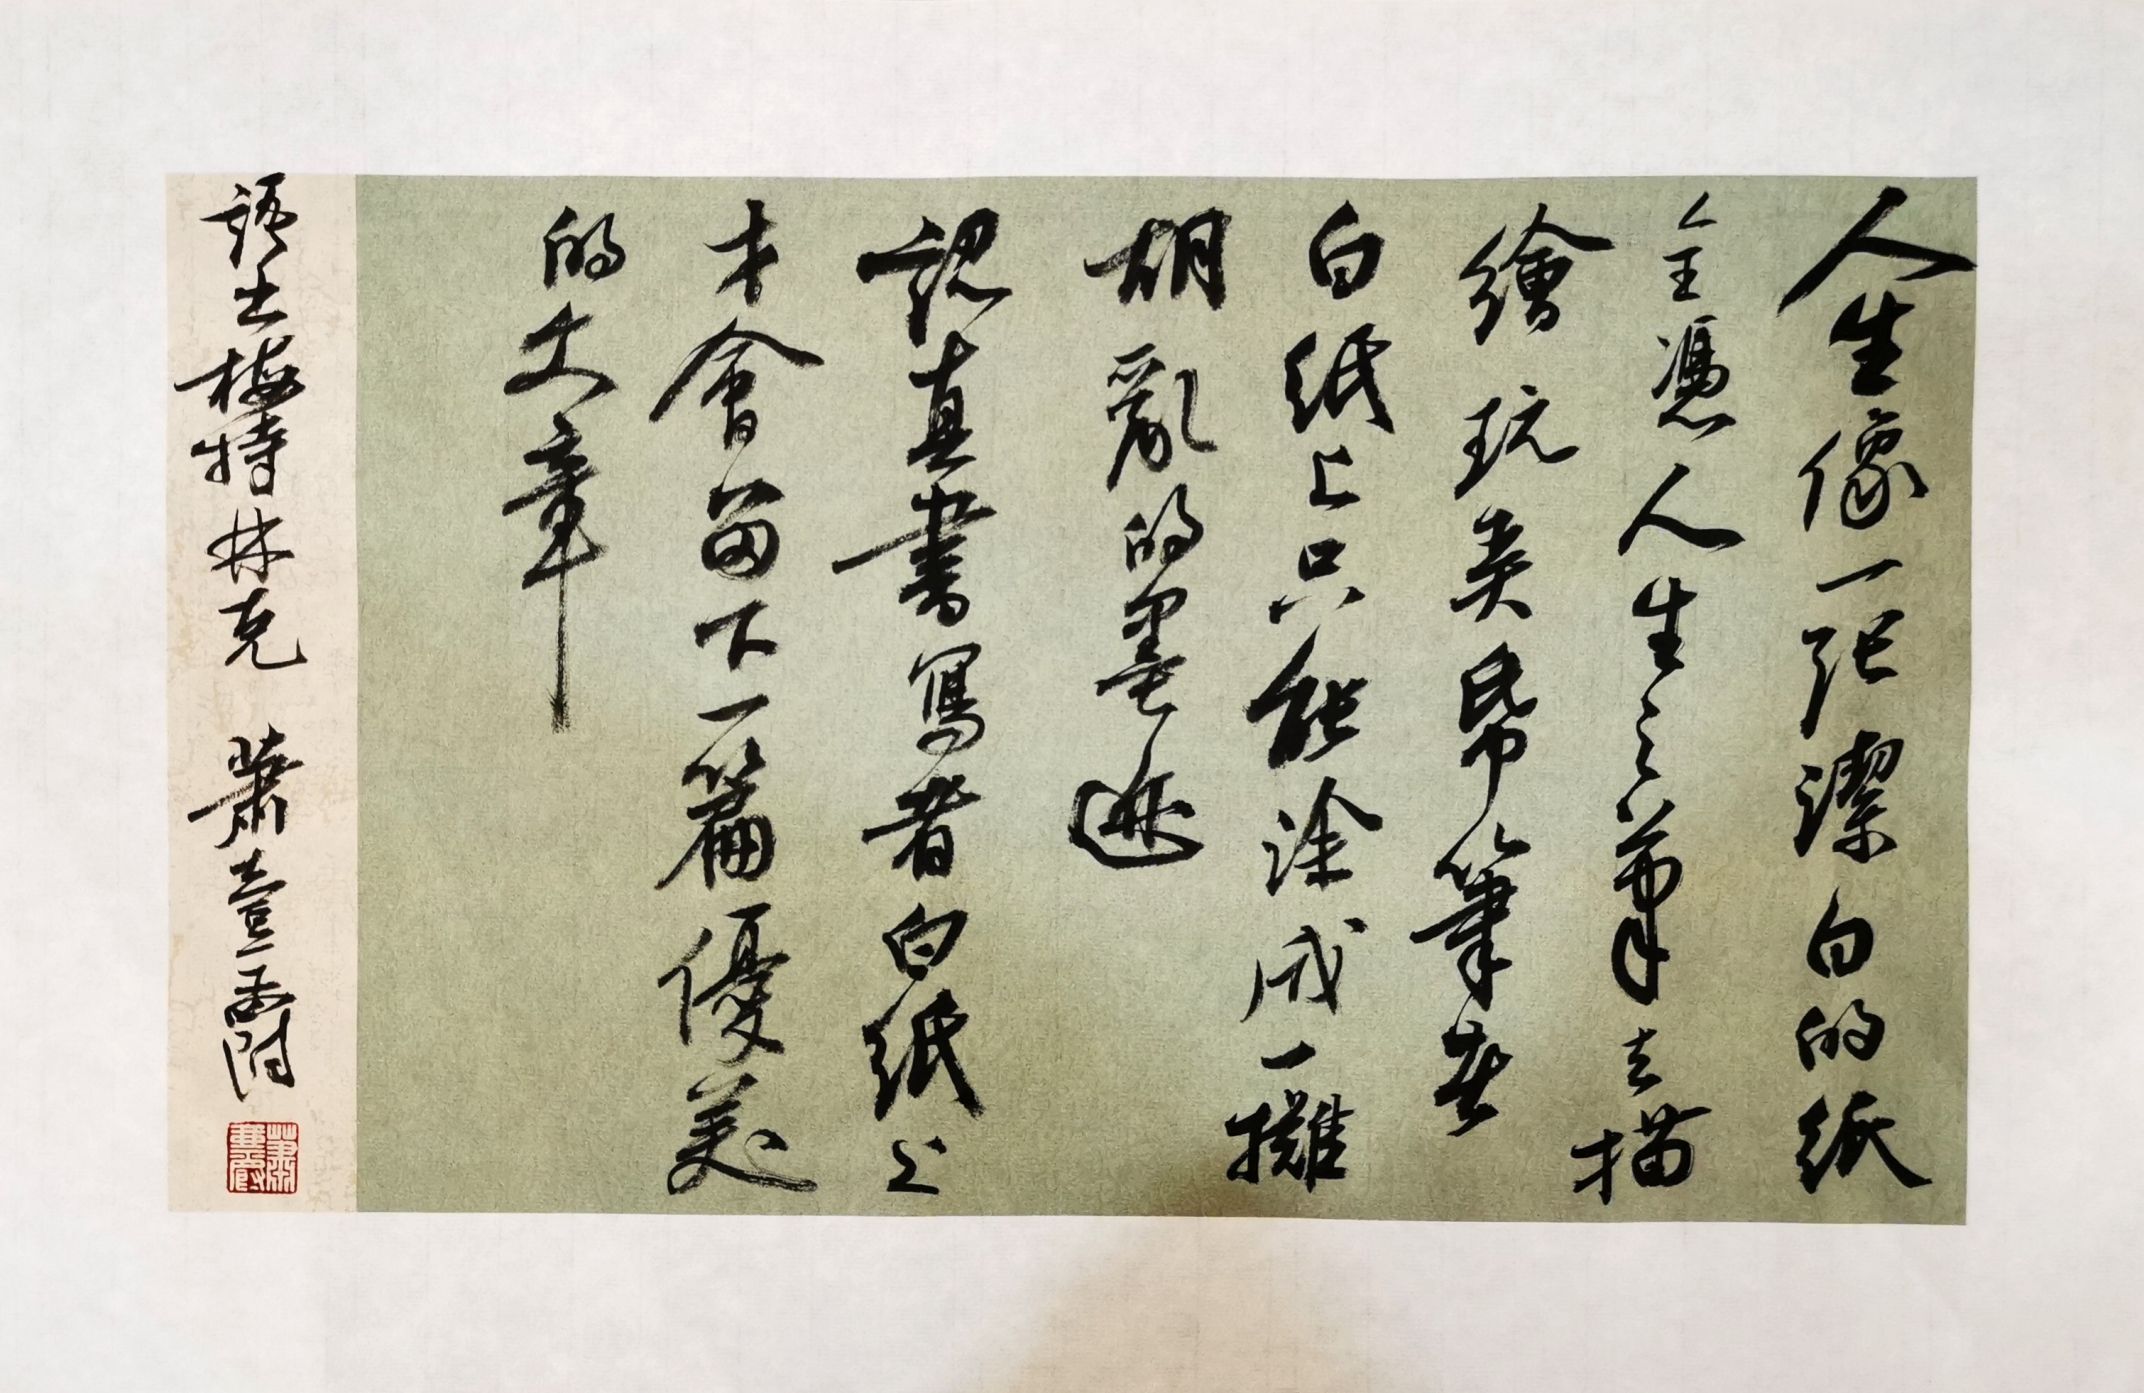 人生像一張潔白的紙
全憑人生之筆去描
繪玩弄紙筆者
白紙上只能塗成一攤
胡亂的墨迹
認真書寫者白紙上
才會留下一篇優美
的文章
語出梅特林克 蕭壹